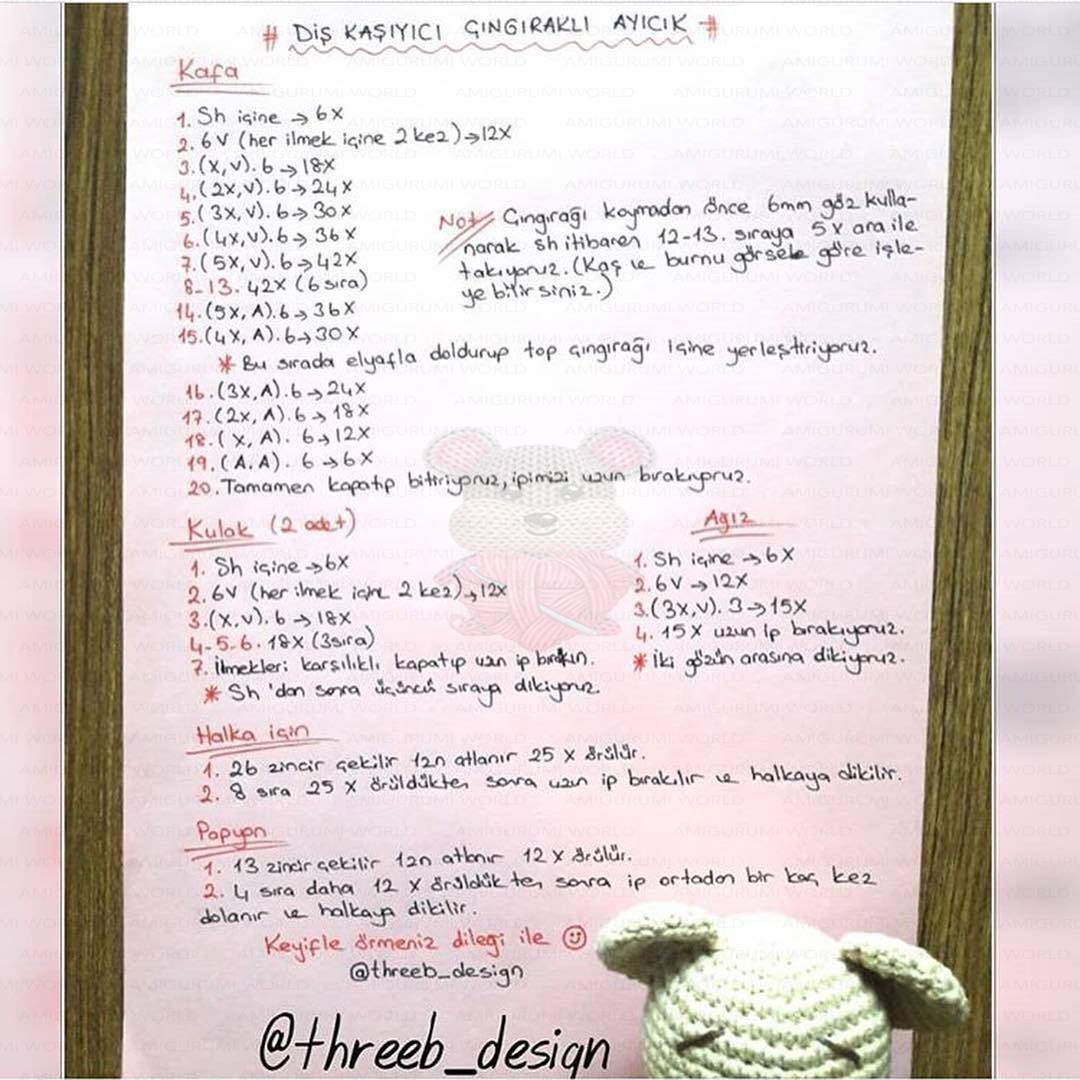 # DİŞ KAŞIYICI ÇINGIRAKLI AYICIK #
Kafa
1. Sh içine → 6X
2. 6V (her ilmek içine 2 kez) → 12X
3. (X, V). 6 → 18X
4. (2X, V). 6 → 24X
5. (3X, V). 6 → 30X
6. (4X, V). 6 → 36X
7. (5X, V). 6 → 42X
8-13. 42X (6 sıra)
14. (5X, A). 6 → 36X
15. (4X, A). 6 → 30X
Not Çıngırağı koymadan önce 6mm göz kulla-
narak sh itibaren 12-13. sıraya 5X ara ile
takıyoruz. (Kaş ve burnu görsele göre işle-
yebilirsiniz.)
* Bu sırada elyafla doldurup top çıngırağı içine yerleşttriyoruz.
16. (3X, A). 6 → 24X
17. (2X, A). 6 → 18X
18. (X, A). 6 → 12X
19. (A.A). 6 → 6X
20. Tamamen kapatıp bitiriyoruz, ipimizi uzun bırakıyoruz.
Kulak (2 adet)
1. Sh içine → 6X
2. 6V (her ilmek içine 2 kez) → 12X
3. (X, V). 6 → 18X
4-5-6. 18X (3sıra)
7. İlmekleri karşılıklı kapatıp uzun ip bırakın.
* Sh 'dan sonra üçüncü sıraya dikiyoruz.
Ağız
1. Sh içine → 6X
2. 6V → 12X
3. (3X, V). 3 → 15X
4. 15X uzun ip bırakıyoruz.
* İki gözün arasına dikiyoruz.
Halka için
1. 26 zincir çekilir 1zn atlanır 25 X örülür.
2. 8 sıra 25 X örüldükten sonra uzun ip bırakılır ve halkaya dikilir.
Papyon
1. 13 zincir çekilir 1zn atlanır 12 X örülür.
2. 4 sıra daha 12 X örüldükten sonra ip ortadan bir kaç kez
dolanır ve halkaya dikilir.
Keyifle örmeniz dileği ile
@threeb_design
@threeb_design
AMIGURUMI WORLD